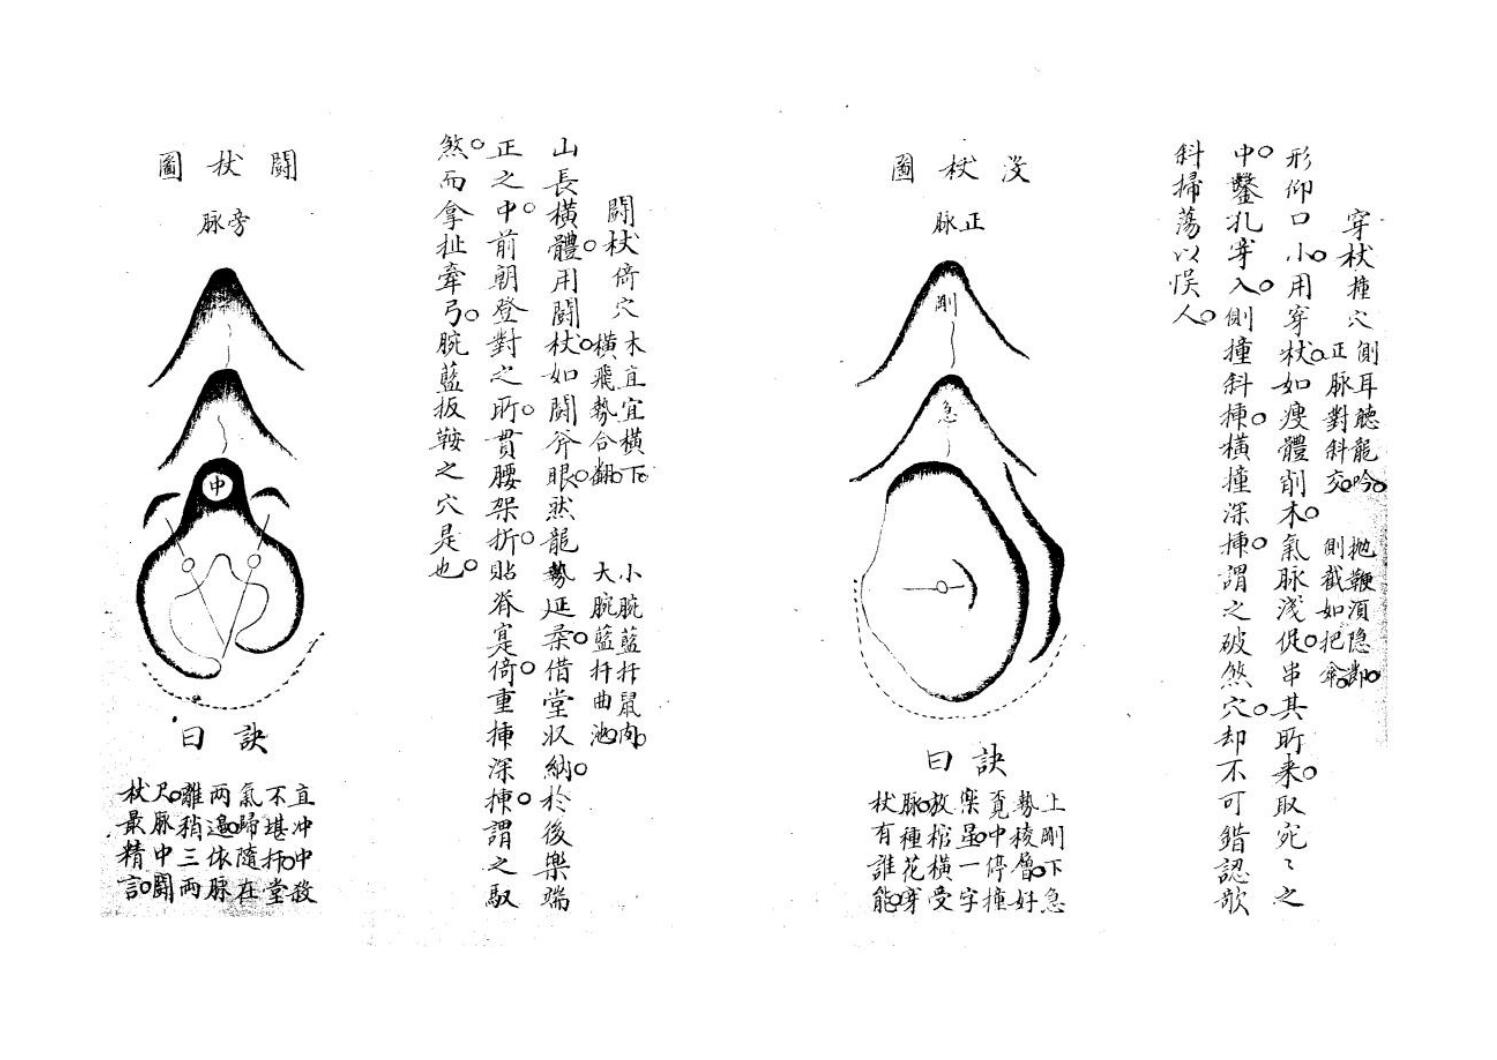 穿杖撞穴
側耳聽龍吟。拋鞭須隐鄰。
正脉對斜交。側截如把傘。
形仰口小。用穿杖。如瘦體削木。氣脉淺促。串其所来。取宛〻之
中。鑿孔穿入。側撞斜揷。橫撞深揷。謂之破煞穴。却不可錯認欹
斜掃蕩以悮人。
没杖圖
正脉
剛
急
訣曰
上剛下急
勢稜層。好
覔中停撞
樂显一字
放棺橫受
脉。種花穿
杖有誰能。
闘杖倚穴
木直宜橫下。小腕藍扦鼠肉。
橫飛勢合翻。大腕藍扦曲池。
山長橫體。用闘杖。如闘斧眼。然龍勢延柔。借堂収納。於後樂端
正之中。前朝登對之所。貫腰架折。貼脊寔倚。重揷深揷。謂之馭
煞。而拿扯牽弓。腕藍扳鞍之穴是也。
闘杖圖
旁脉
中
訣曰
直冲中殺
不堪扦。堂
氣歸隨在
兩邉。依脉
離稍三兩
尺。脉中闘
杖最精言。